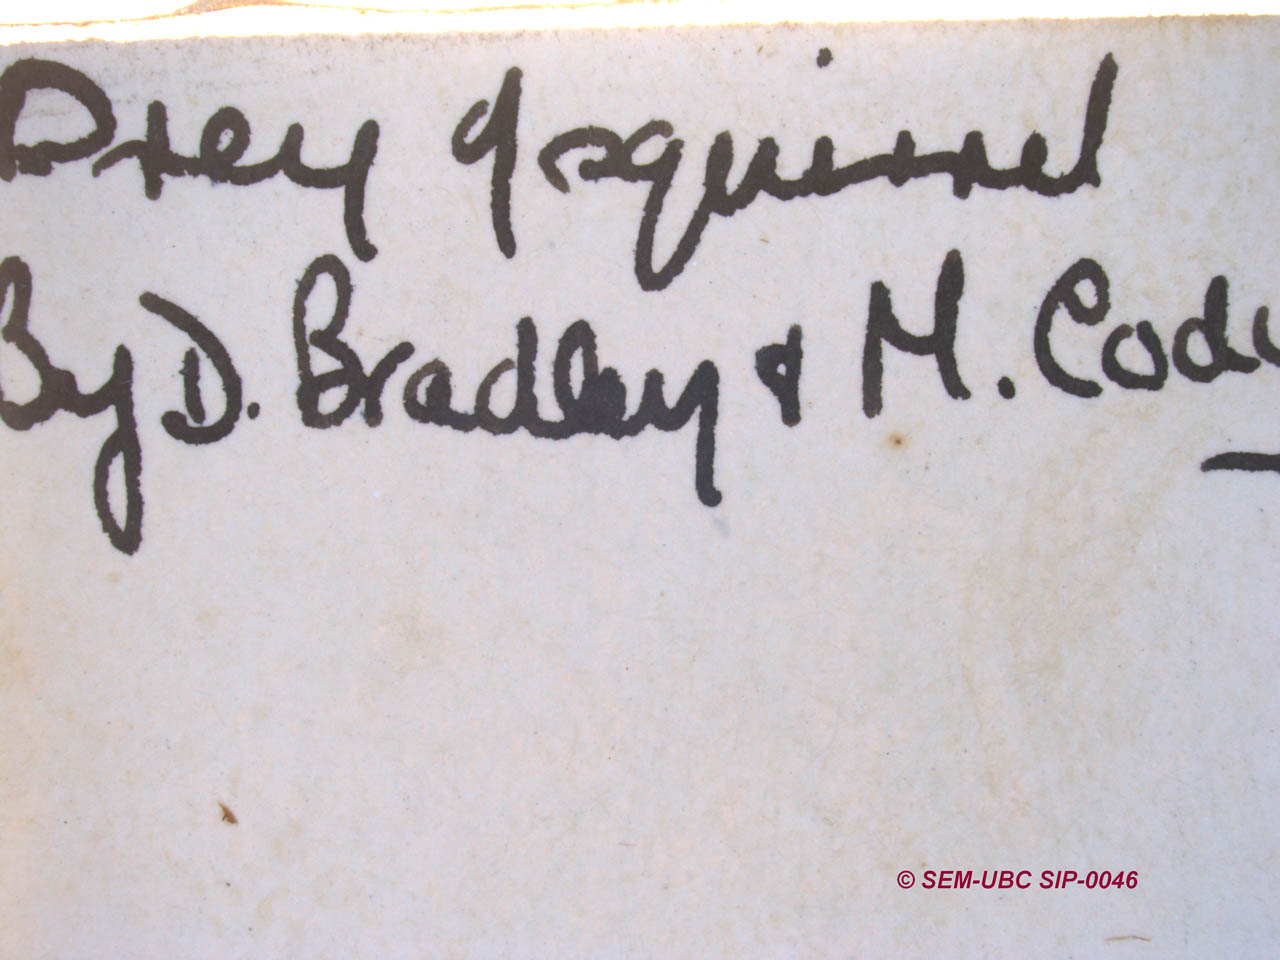 Drey of squirrel
By D. Bradley & M. Cody
© SEM-UBC SIP-0046